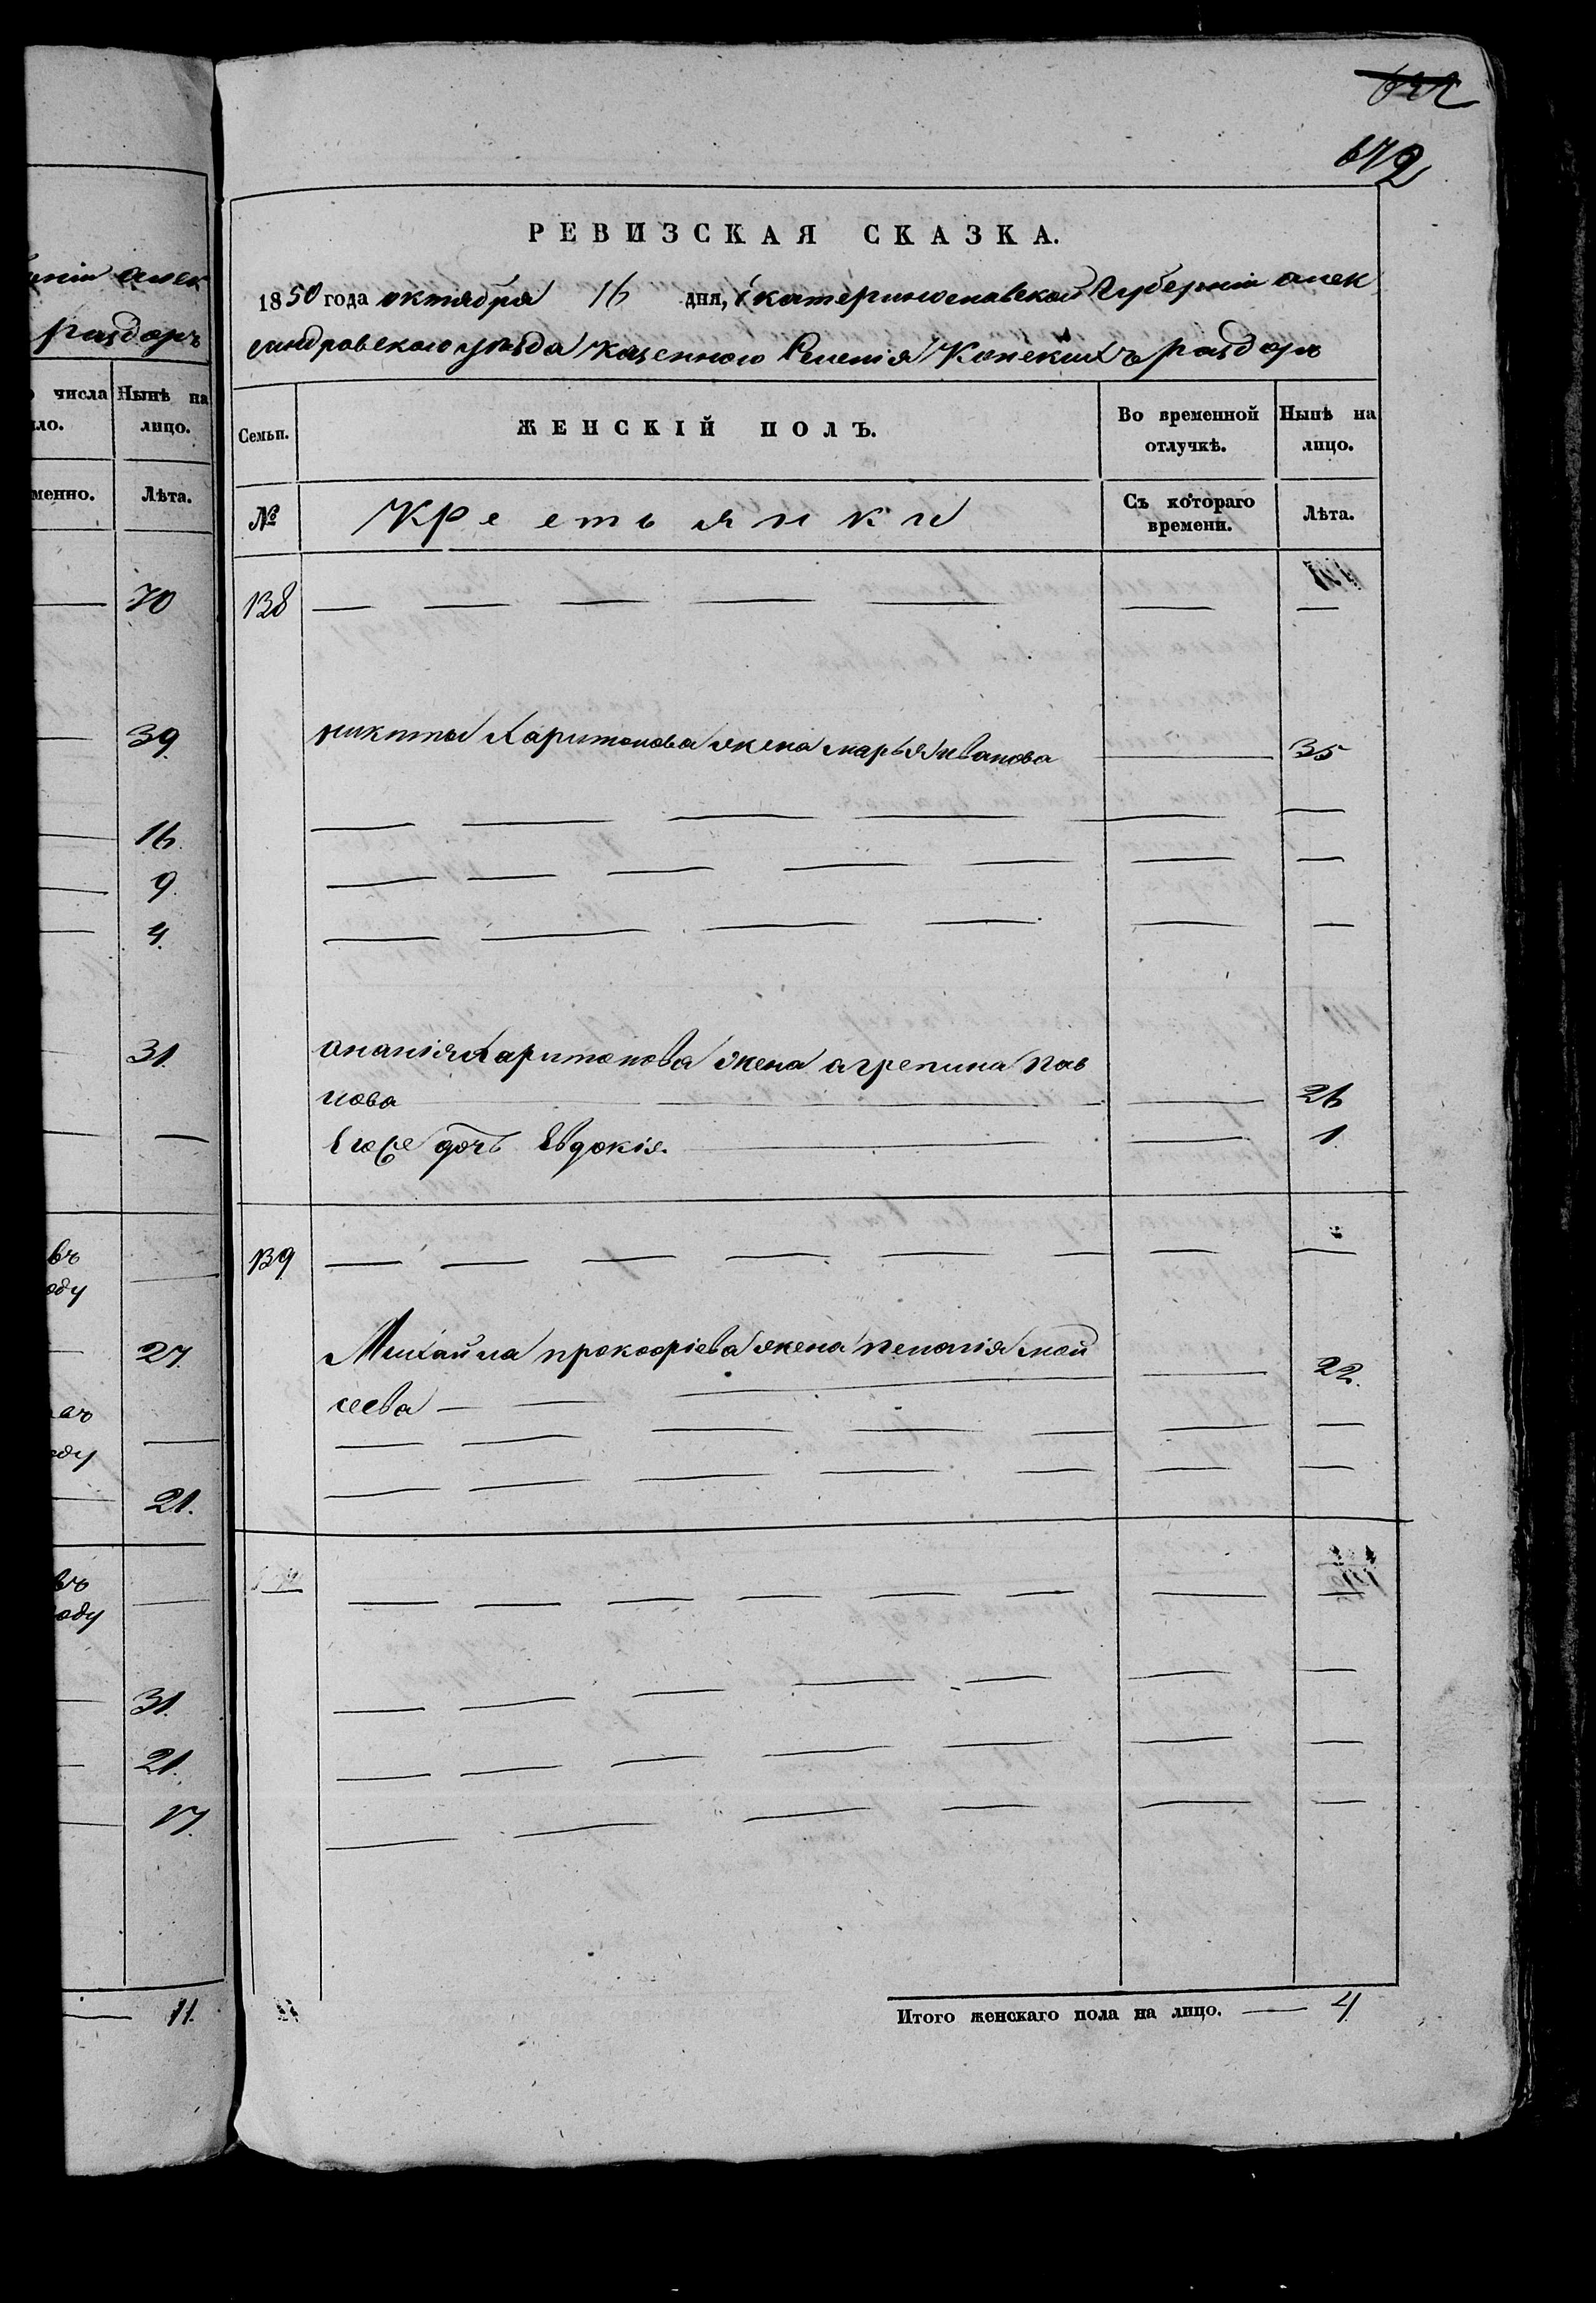 672
енiи алек
раздоръ
числа Нынѣ на
ло. лицо.
менно. Лѣта.
70
39.
16.
9.
4.
31.
въ
оду
27.
оду
21.
въ
оду
31.
21.
17.
11.
РЕВИЗСКАЯ СКАЗКА.
1850 года октября 16 дня, Екатеринославской Губернiи алек
сандровского уѣзда казенного селенiя Конскихъ раздоръ
Семьи. ЖЕНСКІЙ ПОЛЪ. Во временной Нынѣ на
отлучкѣ. лицо.
№ Крестьянки Съ котораго Лѣта.
времени.
138
никиты Харитонова жена марья иванова 35
ананiя Харитонова жена агрепина пав
лова 26
Его же дочь Евдокiя. 1.
139
Михайла прокофiева жена пелагiя мой
сеева 22.
Итого женскаго пола на лицо. 4